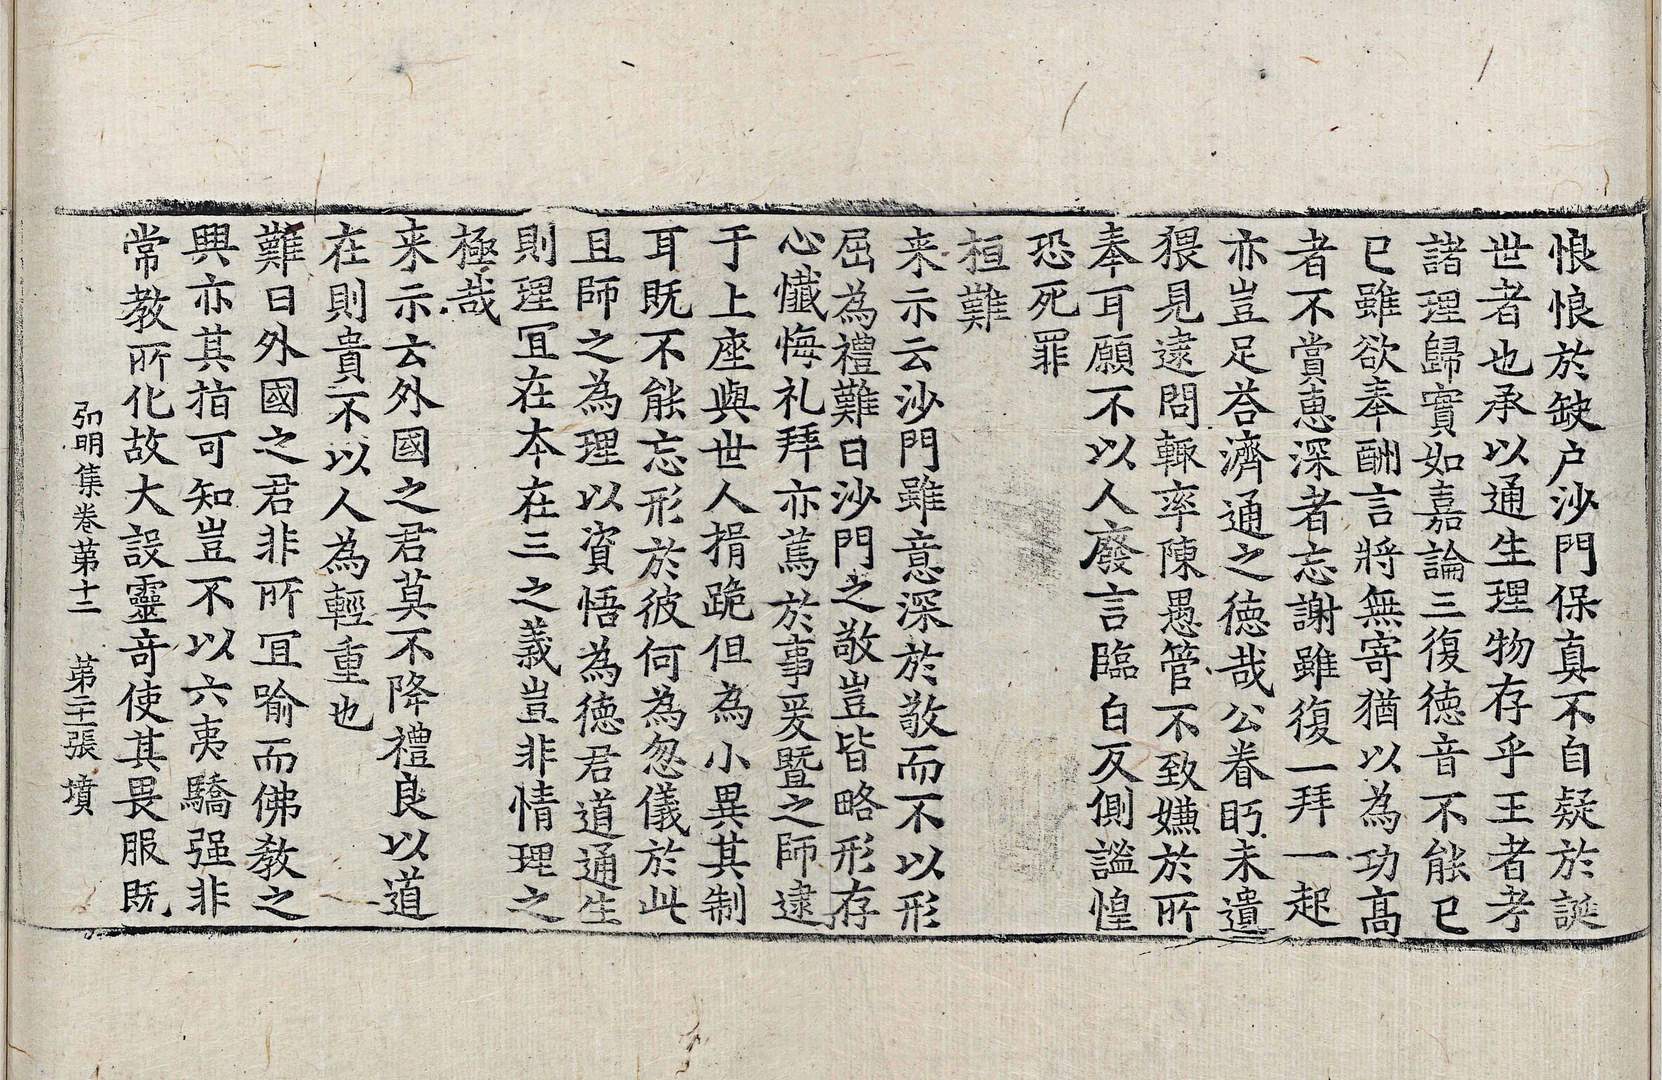 悢悢於缺户沙門保真不自疑於誕
世者也承以通生理物存乎王者考
諸理歸實如嘉論三復徳音不能已
已雖欲奉酬言將無寄猶以為功髙
者不賞惠深者忘謝雖復一拜一起
亦豈足荅濟通之徳哉公眷眄未遺
猥見逮問輒率陳愚管不致嫌於所
奉耳願不以人廢言臨白反側謐惶
恐死罪
桓難
来示云沙門雖意深於敬而不以形
屈為禮難曰沙門之敬豈皆略形存
心懺悔礼拜亦篤於事爰曁之師逮
于上座與世人揖跪但為小異其制
耳既不能忘形於彼何為忽儀於此
且師之為理以資悟為徳君道通生
則理冝在本在三之義豈非情理之
極哉
来示云外國之君莫不降禮良以道
在則貴不以人為輕重也
難曰外國之君非所冝喻而佛教之
興亦其指可知豈不以六夷驕强非
常教所化故大設靈竒使其畏服既
弘明集卷第十二 第二十二張 墳